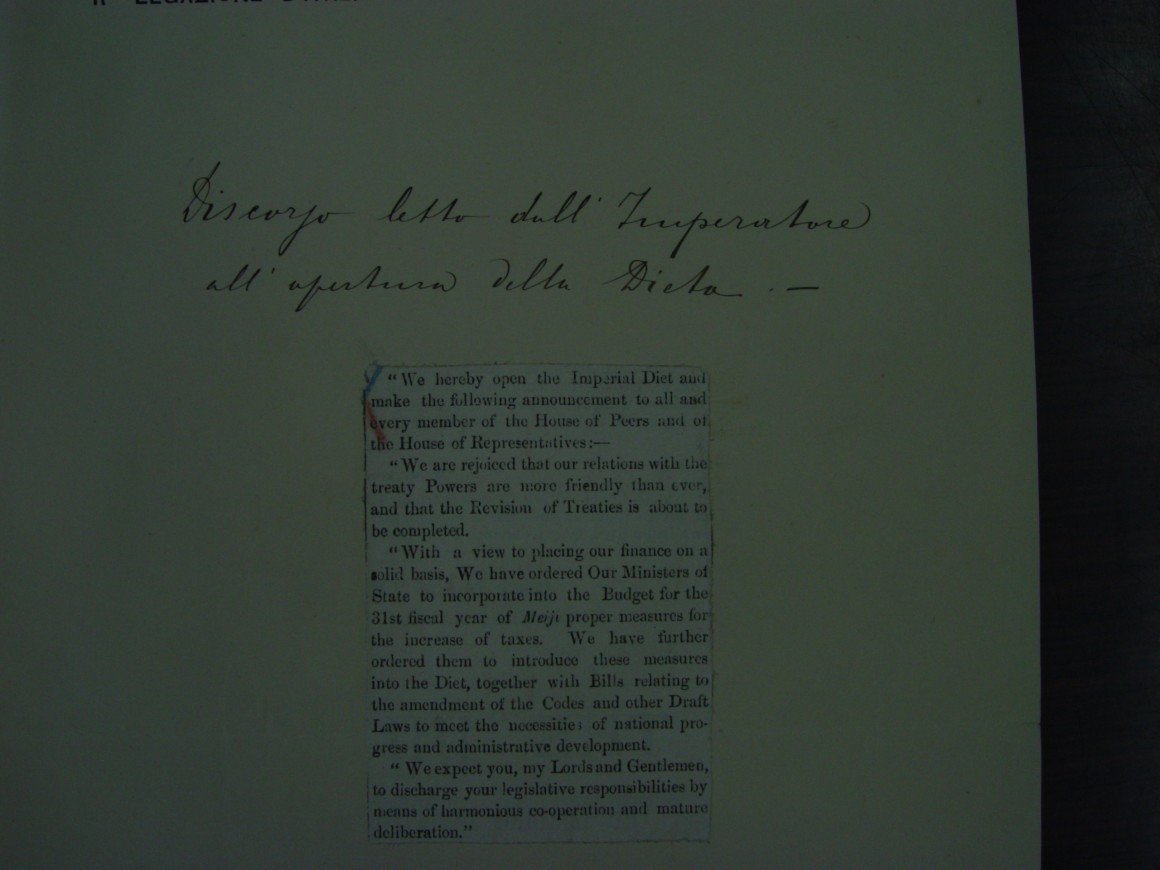 R LEGAZIONE D'ITAL
Discorso letto dall' Imperatore
all' apertura della Dieta . —
"We hereby open the Imperial Diet and
make the following announcement to all and
every member of the House of Peers and of
the House of Representatives:—
"We are rejoiced that our relations with the
treaty Powers are more friendly than ever,
and that the Revision of Treaties is about to
be completed.
"With a view to placing our finance on a
solid basis, We have ordered Our Ministers of
State to incorporate into the Budget for the
31st fiscal year of Meiji proper measures for
the increase of taxes. We have further
ordered them to introduce these measures
into the Diet, together with Bills relating to
the amendment of the Codes and other Draft
Laws to meet the necessities of national pro-
gress and administrative development.
"We expect you, my Lords and Gentlemen,
to discharge your legislative responsibilities by
means of harmonious co-operation and mature
deliberation."